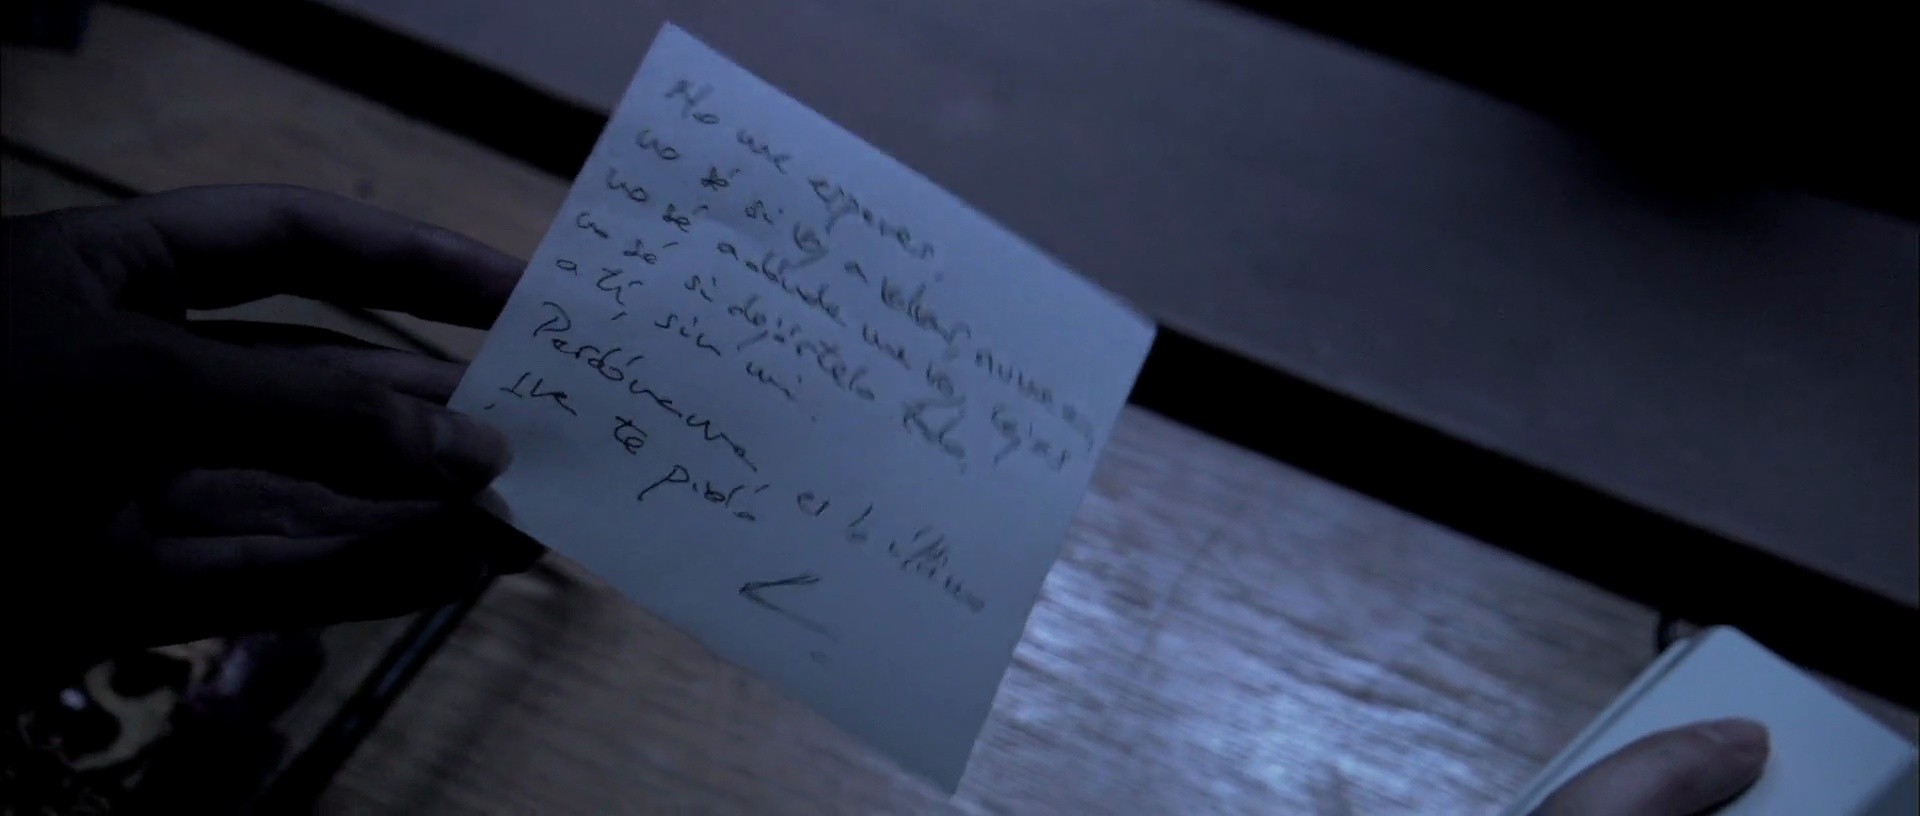 No me esperes.
no sé si voy a volver nunca
no sé adónde me voy, lejos
no sé si dejártelo todo,
a tí, sin mi.
Perdóname es lo último
que te pido